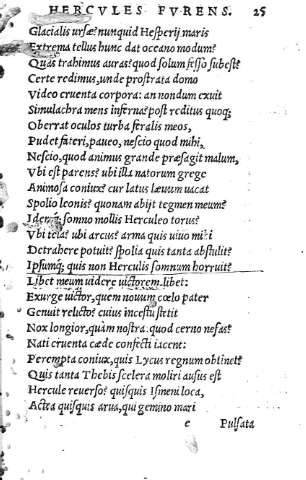 HERCVLES FVRENS. 25
Glacialis ursæ? nunquid Hesperij maris
Extrema tellus hunc dat oceano modum?
Quas trahimus auras? quod solum fesso subest?
Certe redimus, unde prostrata domo
Video cruenta corpora: an nondum exuit
Simulachra mens inferna? post reditus quoq;
Oberrat oculos turba feralis meos,
Pudet fateri, paueo, nescio quod mihi,
Nescio, quod animus grande præsagit malum,
Vbi est parens? ubi illa natorum grege
Animosa coniux? cur latus læuum uacat
Spolio leonis? quonam abijt tegmen meum?
Idemq; somno mollis Herculeo torus?
Vbi tela? ubi arcus? arma quis uiuo mihi
Detrahere potuit? spolia quis tanta abstulit?
Ipsumq; quis non Herculis somnum horruit?
Libet meum uidere uictorem. libet:
Exurge uictor, quem nouum cœlo pater
Genuit relicto? cuius incestu stetit
Nox longior, quàm nostra: quod cerno nefas?
Nati cruenta cæde confecti iacent:
Perempta coniux, quis Lycus regnum obtinet?
Quis tanta Thebis scelera moliri ausus est
Hercule reuerso? quisquis Ismeni loca,
Actæa quisquis arua, qui gemino mari
e Pulsata